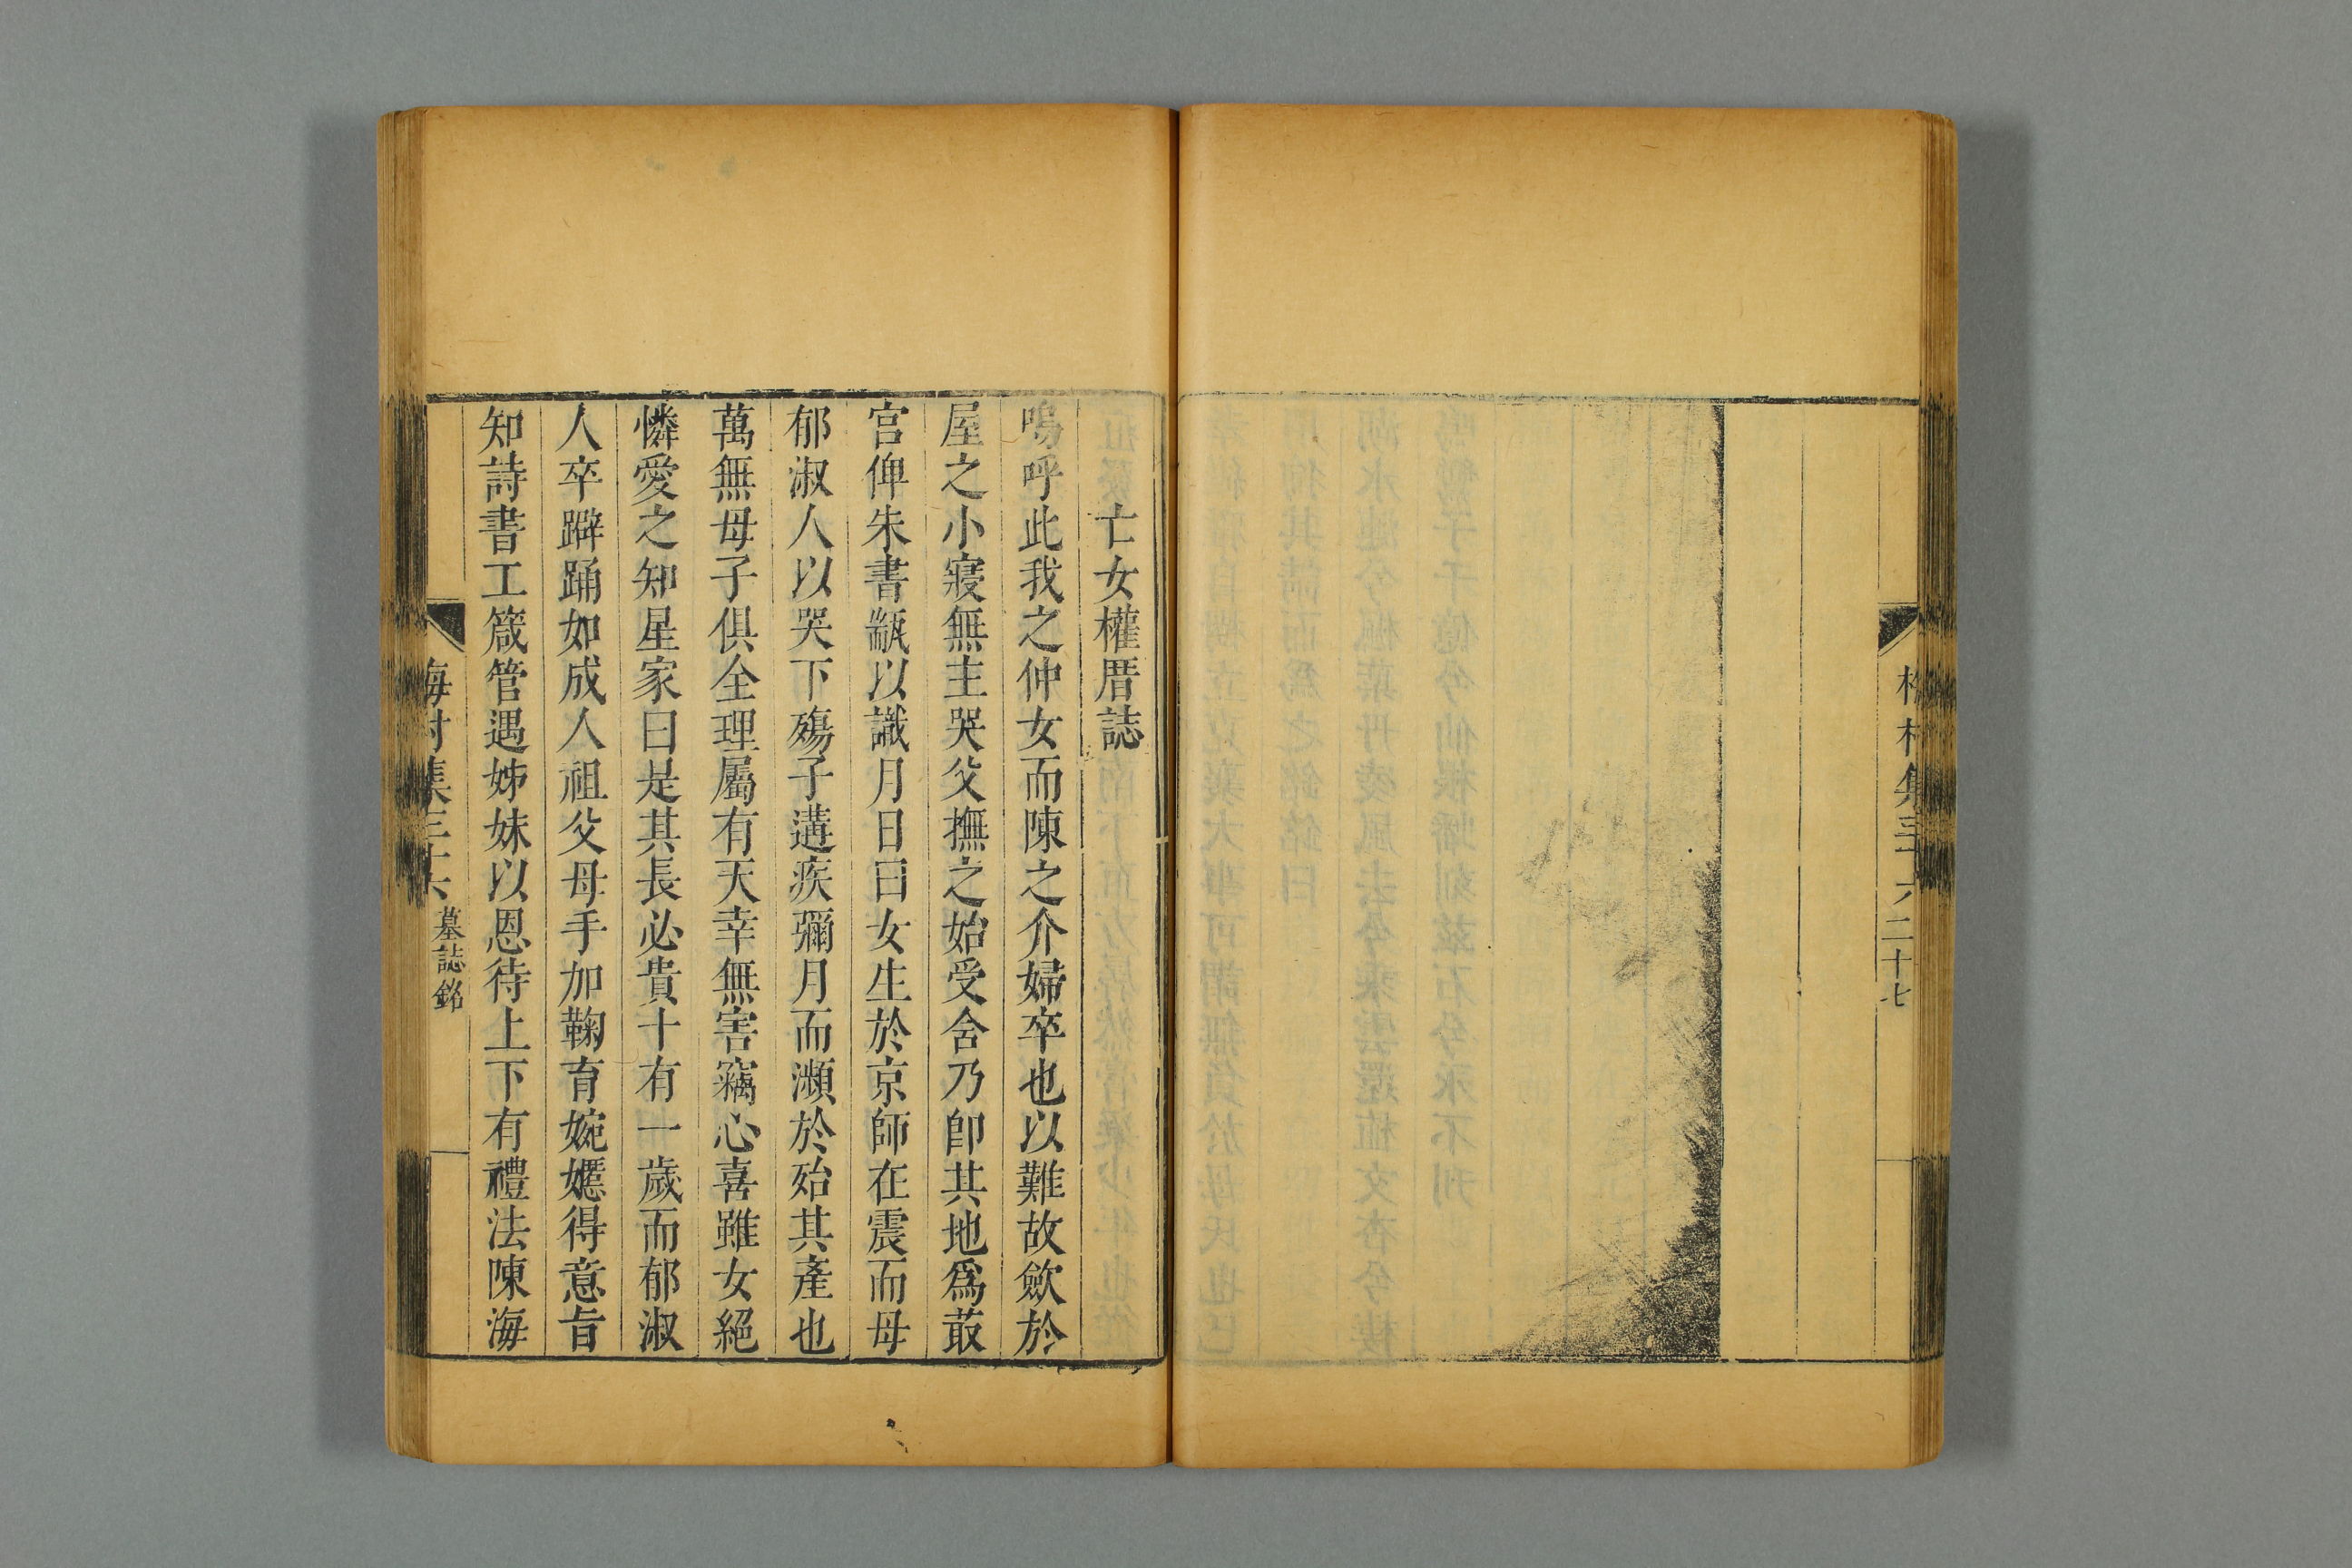 二十七
亡女權厝誌
嗚呼此我之仲女而陳之介婦卒也以難故歛於
屋之小寢無主哭父撫之始受含乃卽其地爲菆
宮俾朱書甎以識月日曰女生於京師在震而母
郁淑人以哭下殤子遘疾彌月而瀕於殆其產也
萬無母子俱全理屬有天幸無害竊心喜雖女絕
憐愛之知星家曰是其長必貴十有一歲而郁淑
人卒躃踊如成人祖父母手加鞠育婉嫕得意旨
知詩書工箴管遇姊妹以恩待上下有禮法陳海
墓誌銘